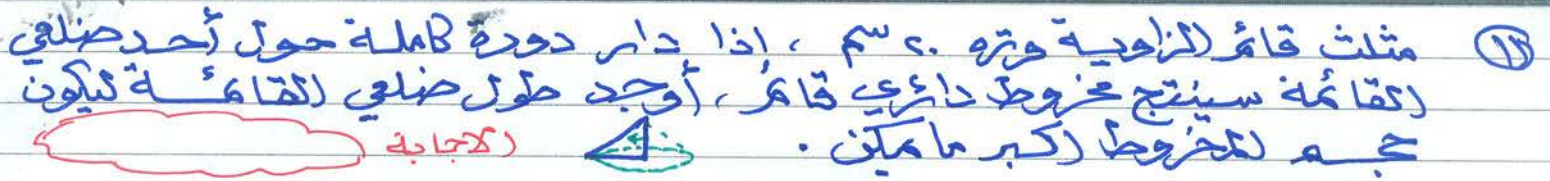 ١٣ مثلث قائم الزاوية وتره ٢٠ سم ، اذا دار دورة كاملة حول أحد ضلعي
القائمة سينتج مخروط دائري قائم ، أوجد طول ضلعي القائمة ليكون
حجم المخروط اكبر ما يمكن . الاجابة